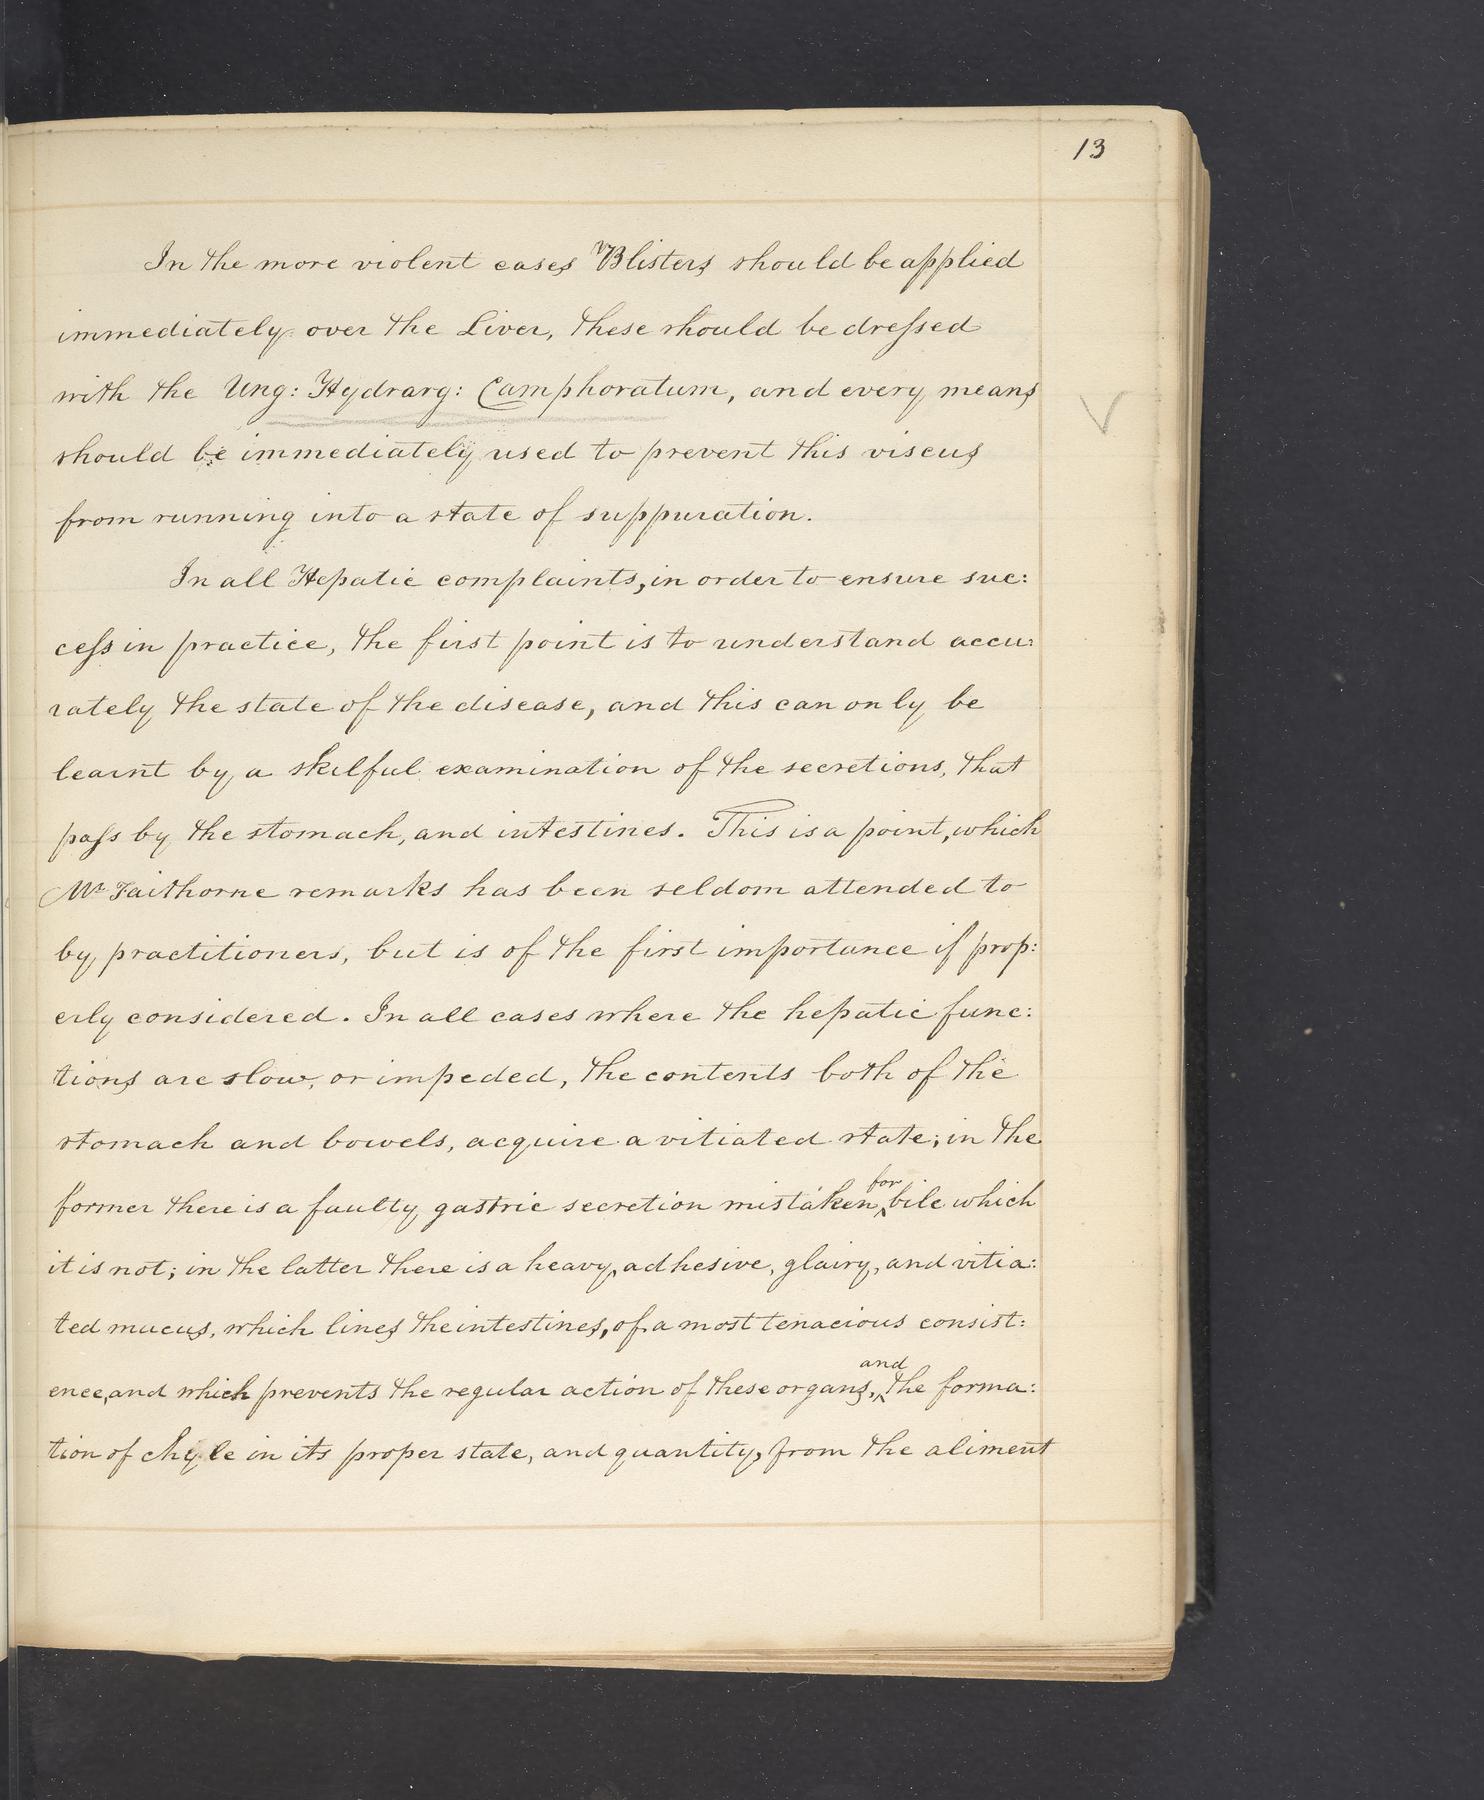 13
In the more violent cases Blisters should be applied
immediately over the Liver, these should be dressed
with the Ung: Hydrarg: Camphoratum, and every means
should be immediately used to prevent this viscus
from running into a state of suppuration.
In all Hepatic complaints, in order to ensure suc:
cess in practice, the first point is to understand accu:
rately the state of the disease, and this can only be
learnt by a skilful examination of the secretions, that
pass by the stomach, and intestines. This is a point, which
Mr Faithorne remarks has been seldom attended to
by practitioners, but is of the first importance if prop:
erly considered. In all cases where the hepatic func:
tions are slow, or impeded, the contents both of the
stomach and bowels, acquire a vitiated state; in the
former there is a faulty gastric secretion mistaken, for bile which
it is not; in the latter there is a heavy, adhesive, glairy, and vitia:
ted mucus, which lines the intestines, of a most tenacious consist:
ence, and which prevents the regular action of these organs, and the forma:
tion of chyle in its proper state, and quantity, from the aliment